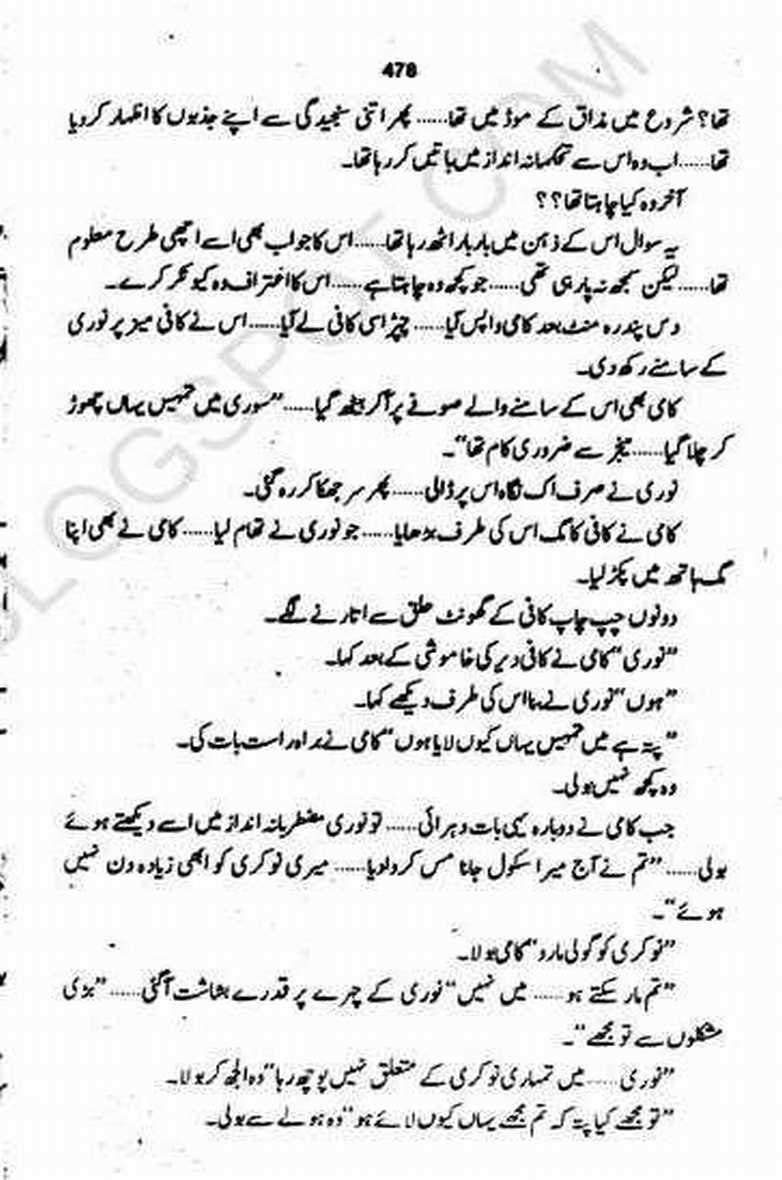 478
تھا؟ شروع میں مذاق کے موڈ میں تھا...... پھر اتنی سنجیدگی سے اپنے جذبوں کا اظہار کر دیا
تھا...... اب وہ اس سے تحکمانہ انداز میں باتیں کر رہا تھا۔
آخر وہ کیا چاہتا تھا؟؟
یہ سوال اس کے ذہن میں بار بار اٹھ رہا تھا...... اس کا جواب بھی اسے اچھی طرح معلوم
تھا...... لیکن سمجھ نہ پا رہی تھی...... جو کچھ وہ چاہتا ہے...... اس کا اعتراف وہ کیونکر کرے۔
دس پندرہ منٹ بعد کامی واپس آیا...... چپڑاسی کافی لے آیا...... اس نے کافی میز پر نوری
کے سامنے رکھ دی۔
کامی بھی اس کے سامنے والے صوفے پر آکر بیٹھ گیا...... ”سوری میں تمہیں یہاں چھوڑ
کر چلا گیا...... منیجر سے ضروری کام تھا“۔
نوری نے صرف اک نگاہ اس پر ڈالی...... پھر سر جھکا کر رہ گئی۔
کامی نے کافی کا مگ اس کی طرف بڑھایا...... جو نوری نے تھام لیا...... کامی نے بھی اپنا
مگ ہاتھ میں پکڑ لیا۔
دونوں چپ چاپ کافی کے گھونٹ حلق سے اتارنے لگے۔
”نوری“ کامی نے کافی دیر کی خاموشی کے بعد کہا۔
”ہوں“ نوری نے بنا اس کی طرف دیکھے کہا۔
”پتہ ہے میں تمہیں یہاں کیوں لایا ہوں“ کامی نے براہ راست بات کی۔
وہ کچھ نہیں بولی۔
جب کامی نے دوبارہ یہی بات دہرائی...... تو نوری مضطربانہ انداز میں اسے دیکھتے ہوئے
بولی...... ”تم نے آج میرا سکول جانا مس کروا دیا...... میری نوکری کو ابھی زیادہ دن نہیں
ہوئے“۔
”نوکری کو گولی مارو“ کامی بولا۔
”تم مار سکتے ہو...... میں نہیں“ نوری کے چہرے پر قدرے بشاشت آگئی...... ”بڑی
مشکلوں سے تو مجھے“۔
”نوری...... میں تمہاری نوکری کے متعلق نہیں پوچھ رہا“ وہ الجھ کر بولا۔
”تو مجھے کیا پتہ کہ تم مجھے یہاں کیوں لائے ہو“ وہ ہولے سے بولی۔
LOGSPOT.COM